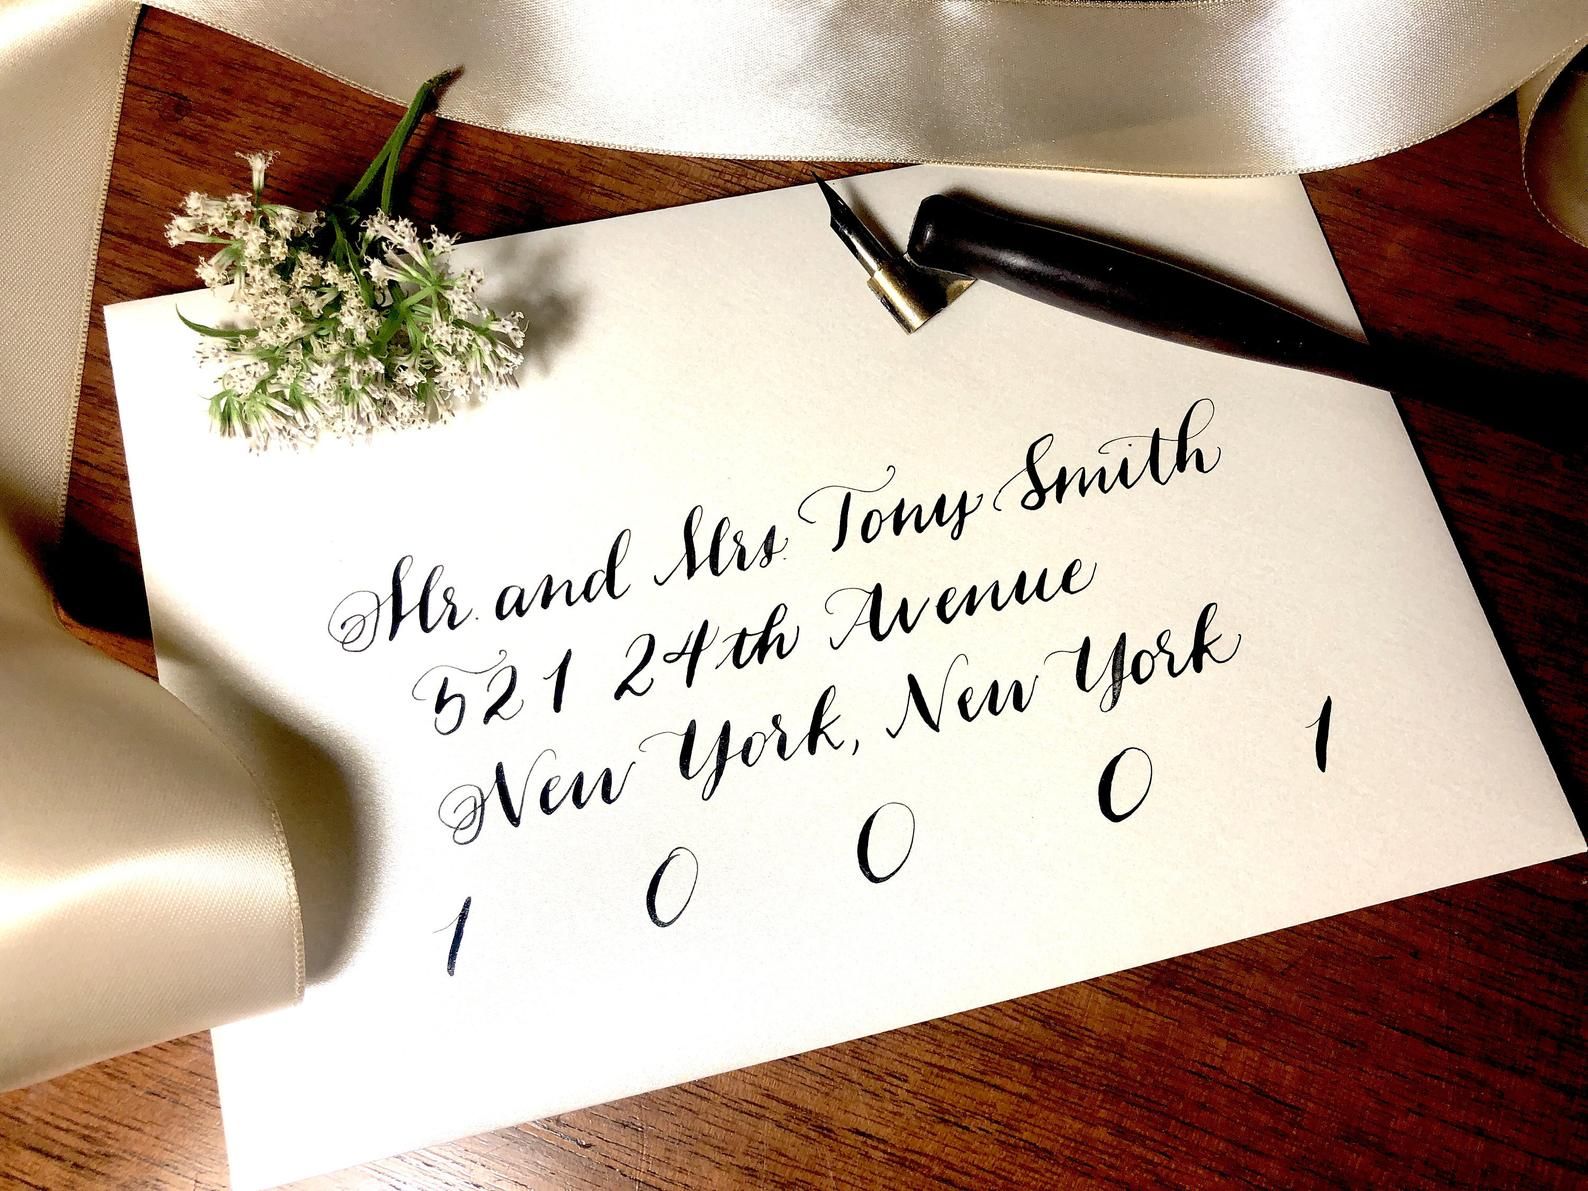 Mr. and Mrs. Tony Smith
521 24th Avenue
New York, New York
1 0 0 0 1